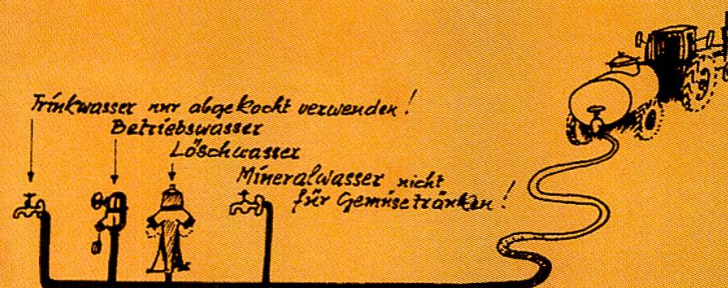 Trinkwasser nur abgekocht verwenden!
Betriebswasser
Löschwasser
Mineralwasser nicht
für Gemüsetränken!